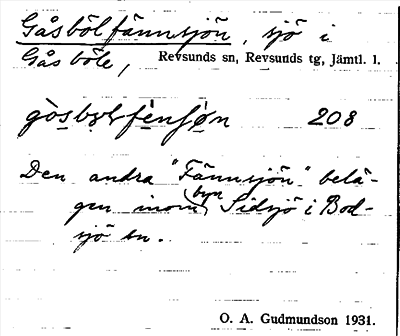 Gåsbölfännsjön, sjö i
Gåsböle, Revsunds sn, Revsunds tg, Jämtl. l.
gòsbøl̥fènʃøn 208
Den andra "Fännsjön" belä-
gen inom byn Sidsjö i Bod-
sjö sn.
O. A. Gudmundson 1931.